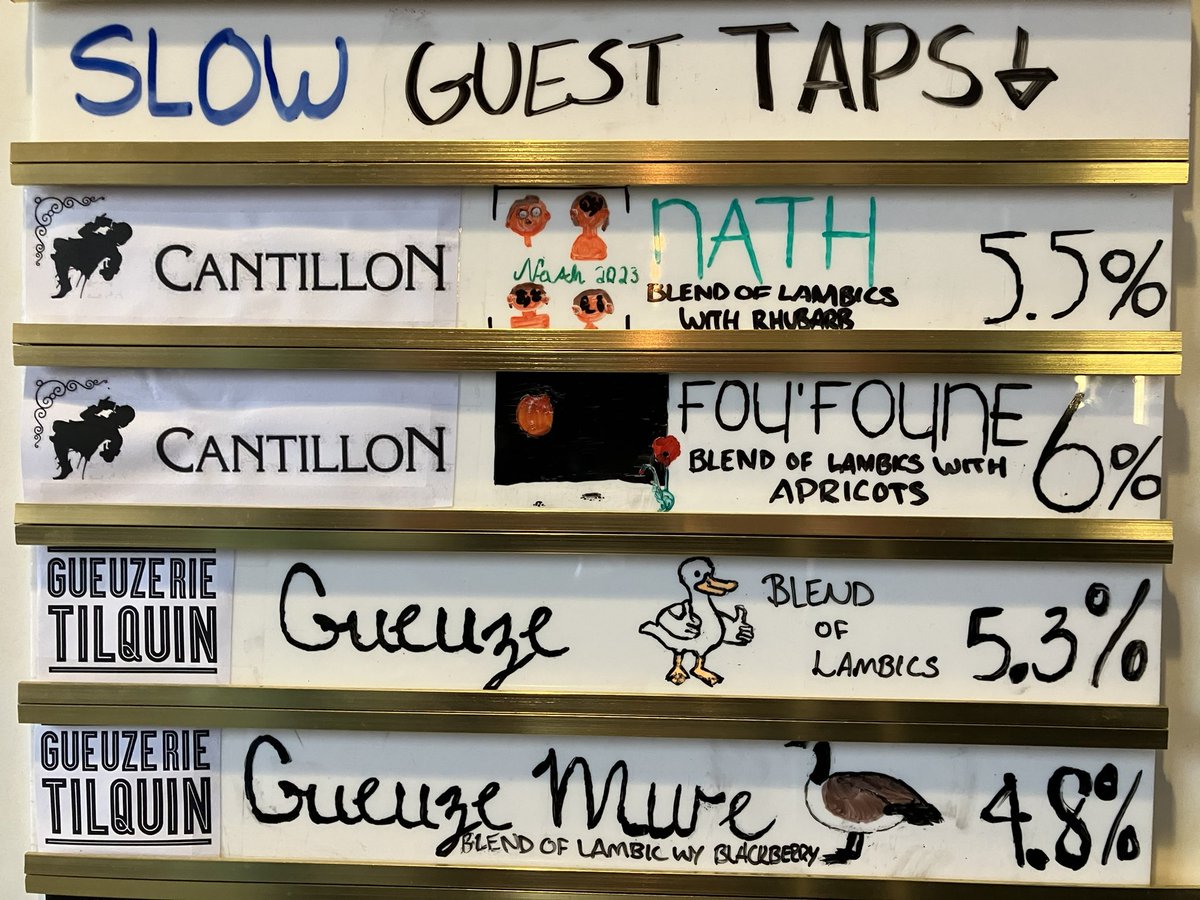 SLOW GUEST TAPS
CANTILLON
Nath 2023
NATH
BLEND OF LAMBICS
WITH RHUBARB
5.5%
CANTILLON
FOU'FOUNE
BLEND OF LAMBICS WITH
APRICOTS
6%
GUEUZERIE
TILQUIN
Gueuze
BLEND
OF
LAMBICS
5.3%
GUEUZERIE
TILQUIN
Gueuze Mure
BLEND OF LAMBIC W/ BLACKBERRY
4.8%